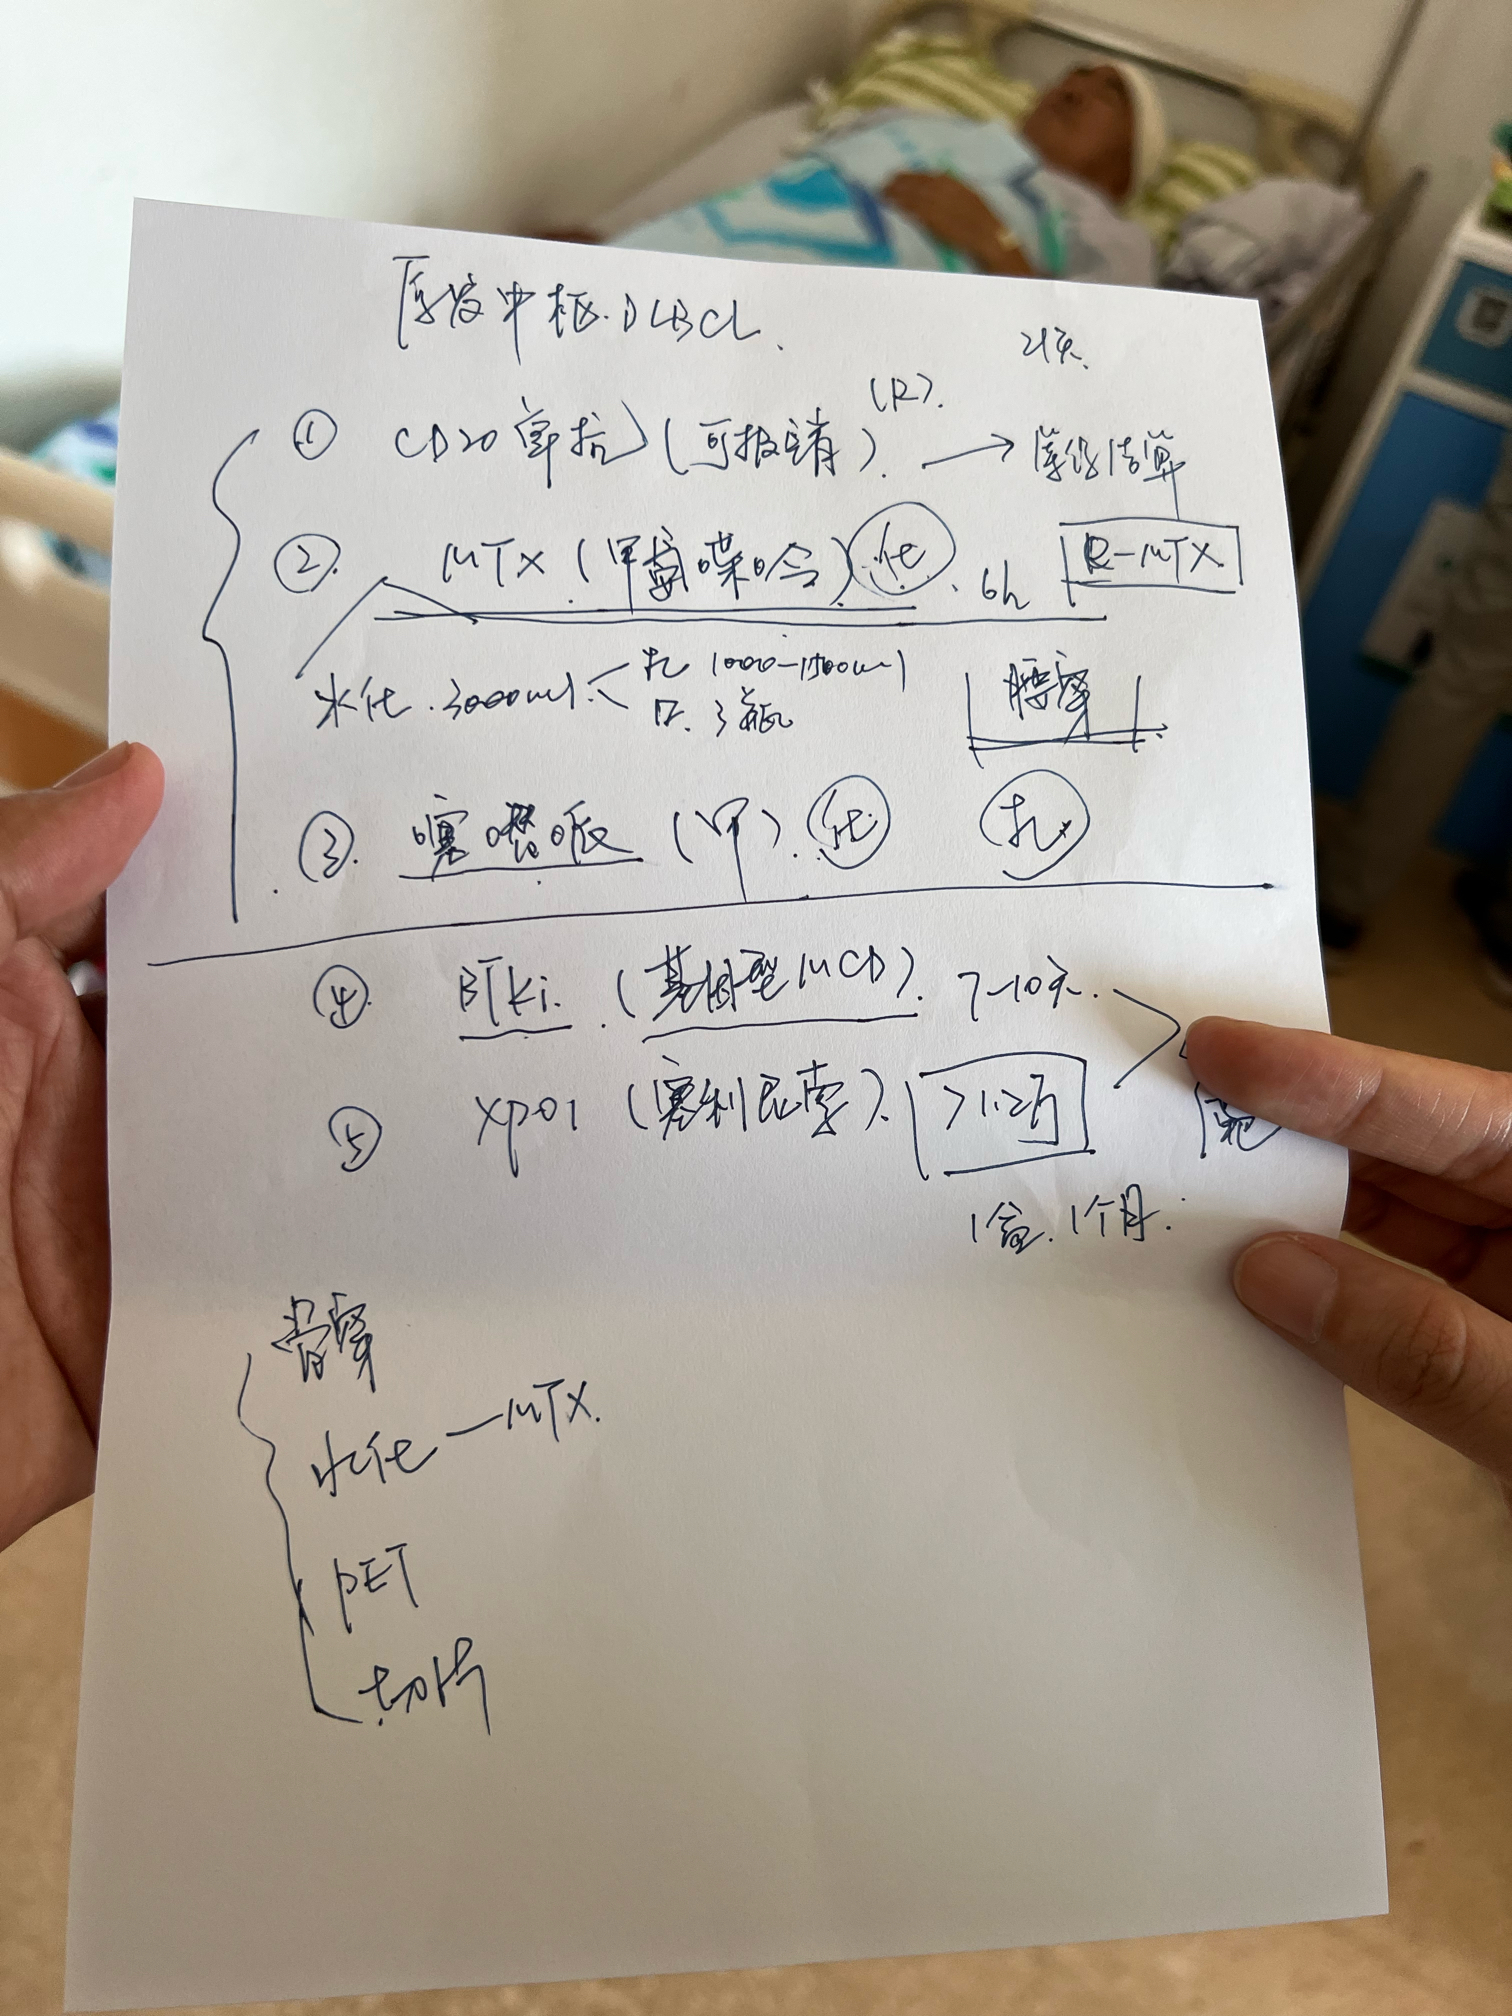 原发中枢.DLBCL.
21天.
① CD20单抗(可报销).(R). → 算
② MTX(甲氨喋呤)化.6h R-MTX
水化.3000ml.
扎 1000-1500ml
口.3瓶
腰穿
③. 噻嘧哌(甲).化 扎
④. BTKi.(基因型MCD).7-10天.
⑤ XPO1(塞利尼索). >1.2万
1盒.1个月.
骨穿
水化—MTX.
PET
切片